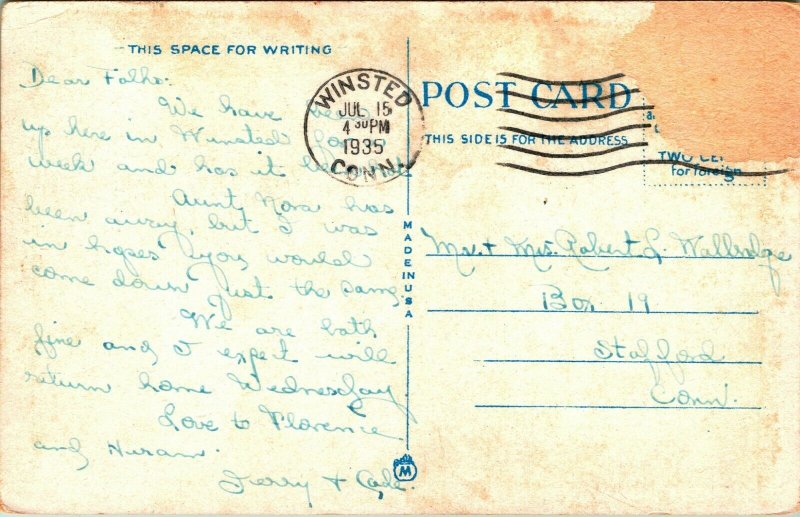 THIS SPACE FOR WRITING
Dear Folks:
We have been
up here in Winsted for a
week and has it been hot
Aunt Nora has
been away, but I was
in hopes you would
come down just the same.
We are both
fine and I expect will
return home Wednesday
Love to Florence
and Huram.
Jerry +
WINSTED
JUL 15
4 30 PM
1935
CONN.
POST CARD
THIS SIDE IS FOR THE ADDRESS
TWO CE
for foreign
MADE IN USA
Mr. + Mrs. Robert L. Wallridge
Box 19
Stafford
Conn.
M